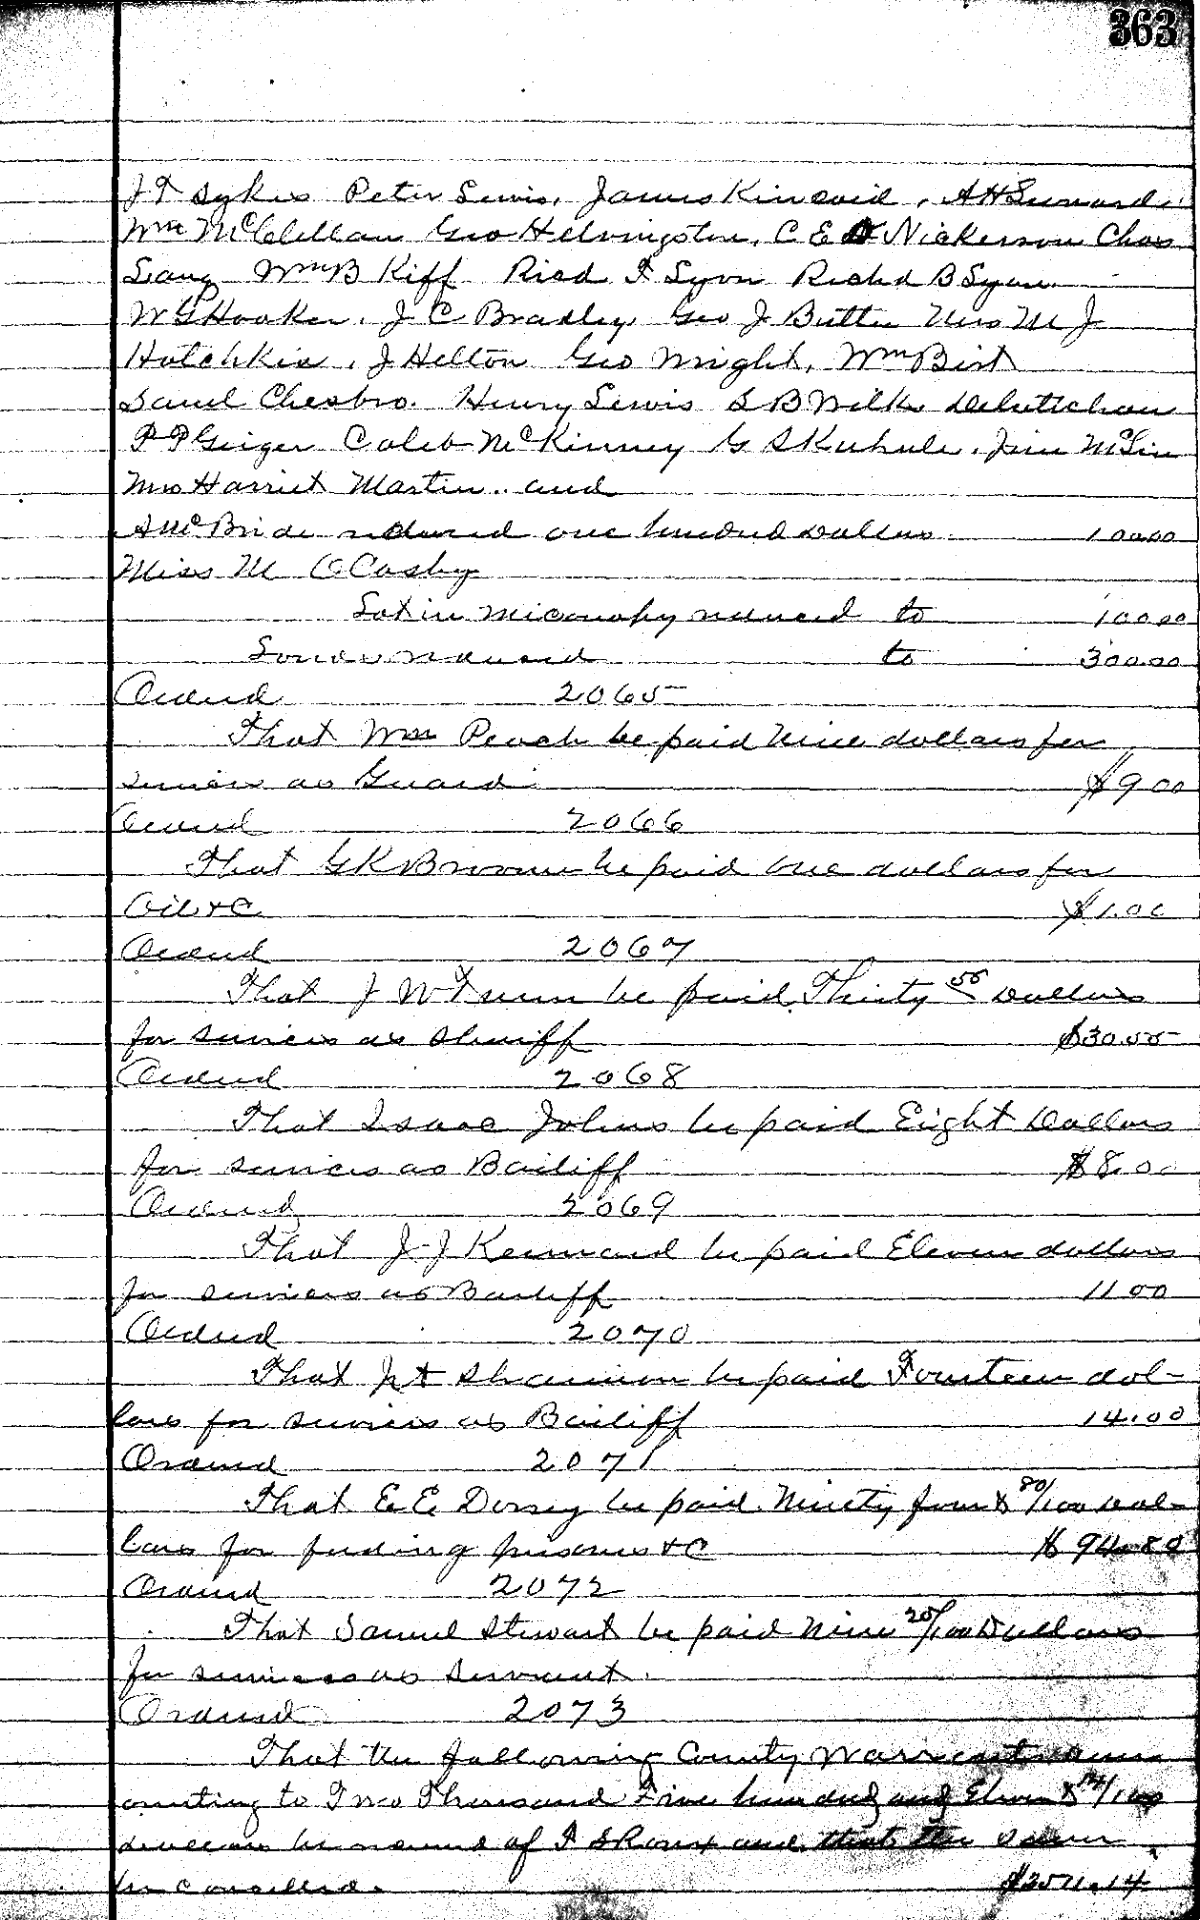 363
J T Sykes Peter Lewis, James Kincaid, A H
Wm McClellan Geo H Livingston, C E Nickerson Chas
Lang WmB Kiff Ricd I Lyon Richd B Lyon
W G Hooker, J C Bradley, Geo J Butter Mrs M J
Hotchkis, J Helton Geo Wright, Wm Birt
Saml Chesbro. Henry Lewis S B Wilks
P P Geiger Caleb McKinney G S Kuhule, Jim
Mrs Harriet Martin.. and
S McBride reduced one hundred dollars 100.00
Miss M
Lot in Micanopy reduced to 100.00
reduced to 300.00
Ordered 2065
That Wm Peach be paid Nine dollars for
services as Guard $9.00
Ordered 2066
That G K Broome be paid One dollars for
Oil &c $1.00
Ordered 2067
That J W be paid, Thirty 55 Dollars
for services as Sheriff $30.55
Ordered 2068
That Isaac Johns be paid Eight Dollars
for services as Bailiff $8.00
Ordered 2069
That J J Kennard be paid Eleven dollars
for services as Bailiff 11 00
Ordered 2070
That Shannon be paid Fourteen dol-
lars for services as Bailiff 14.00
Ordered 2071
That E. E. Dorsey be paid Ninety four & 80/100 Dol-
lars for feeding prisoners &C $94.80
Ordered 2072
That Samuel Stewart be paid Nine 20/100 Dollars
for services as servant.
Ordered 2073
That the following County Warrants am
ounting to Two Thousand Five hundred and Eleven & 14/100
be of and that the same
be cancelled. $2511.14